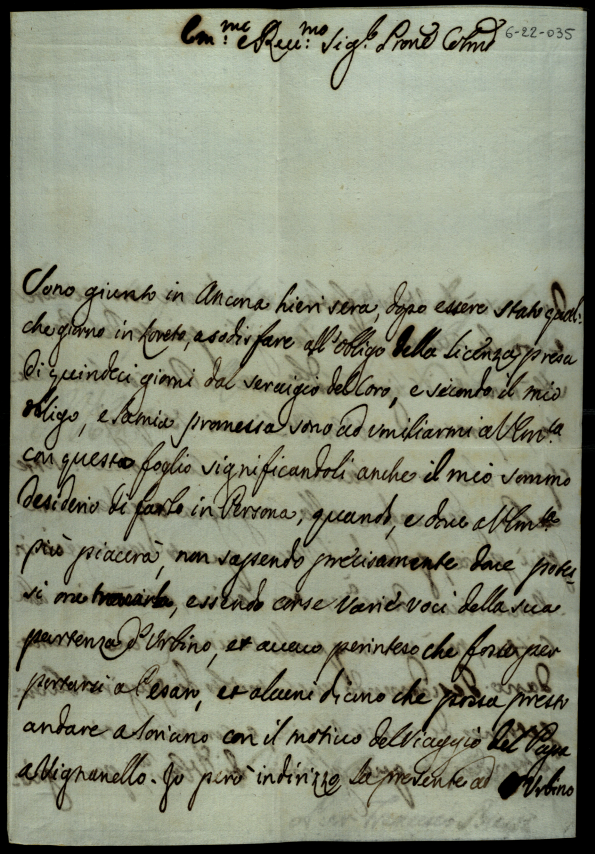 Em.mo e Rev.mo Sig.r Pron Colmo
6-22-035
Sono giunto in Ancona hieri sera, dopo essere stato qual:
che giorno in Loreto, a sodisfare all'obligo della Licenza presa
di quindeci giorni dal servigio del Coro, e secondo il mio
obligo, e la mia promessa sono ad umiliarmi a V. Em.za
con questo foglio significandoli anche il mio sommo
desiderio di farlo in Persona, quando, e dove a V. Em.za
più piacerà, non sapendo precisamente dove potes=
si ora trovarla, essendo corse varie voci della sua
partenza d'Urbino, et avevo perinteso che fosse per
portarsi a Pesaro, et alcuni dicono che possa presto
andare a Soriano con il motivo del Viaggio del Papa
a Vignanello. Io però indirizzo la presente ad Urbino